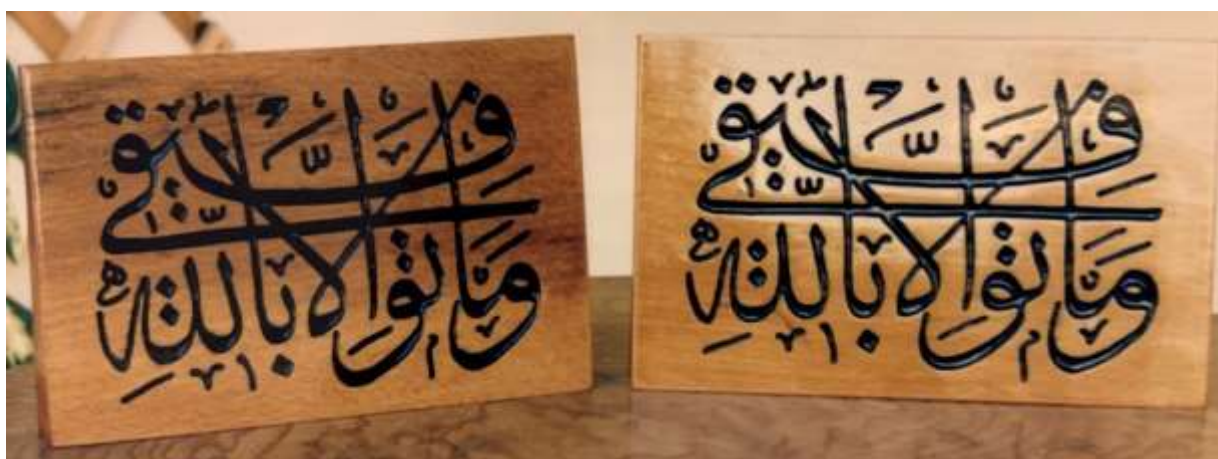 وَمَا تَوْفِيقِي إِلَّا بِاللَّهِ
وَمَا تَوْفِيقِي إِلَّا بِاللَّهِ